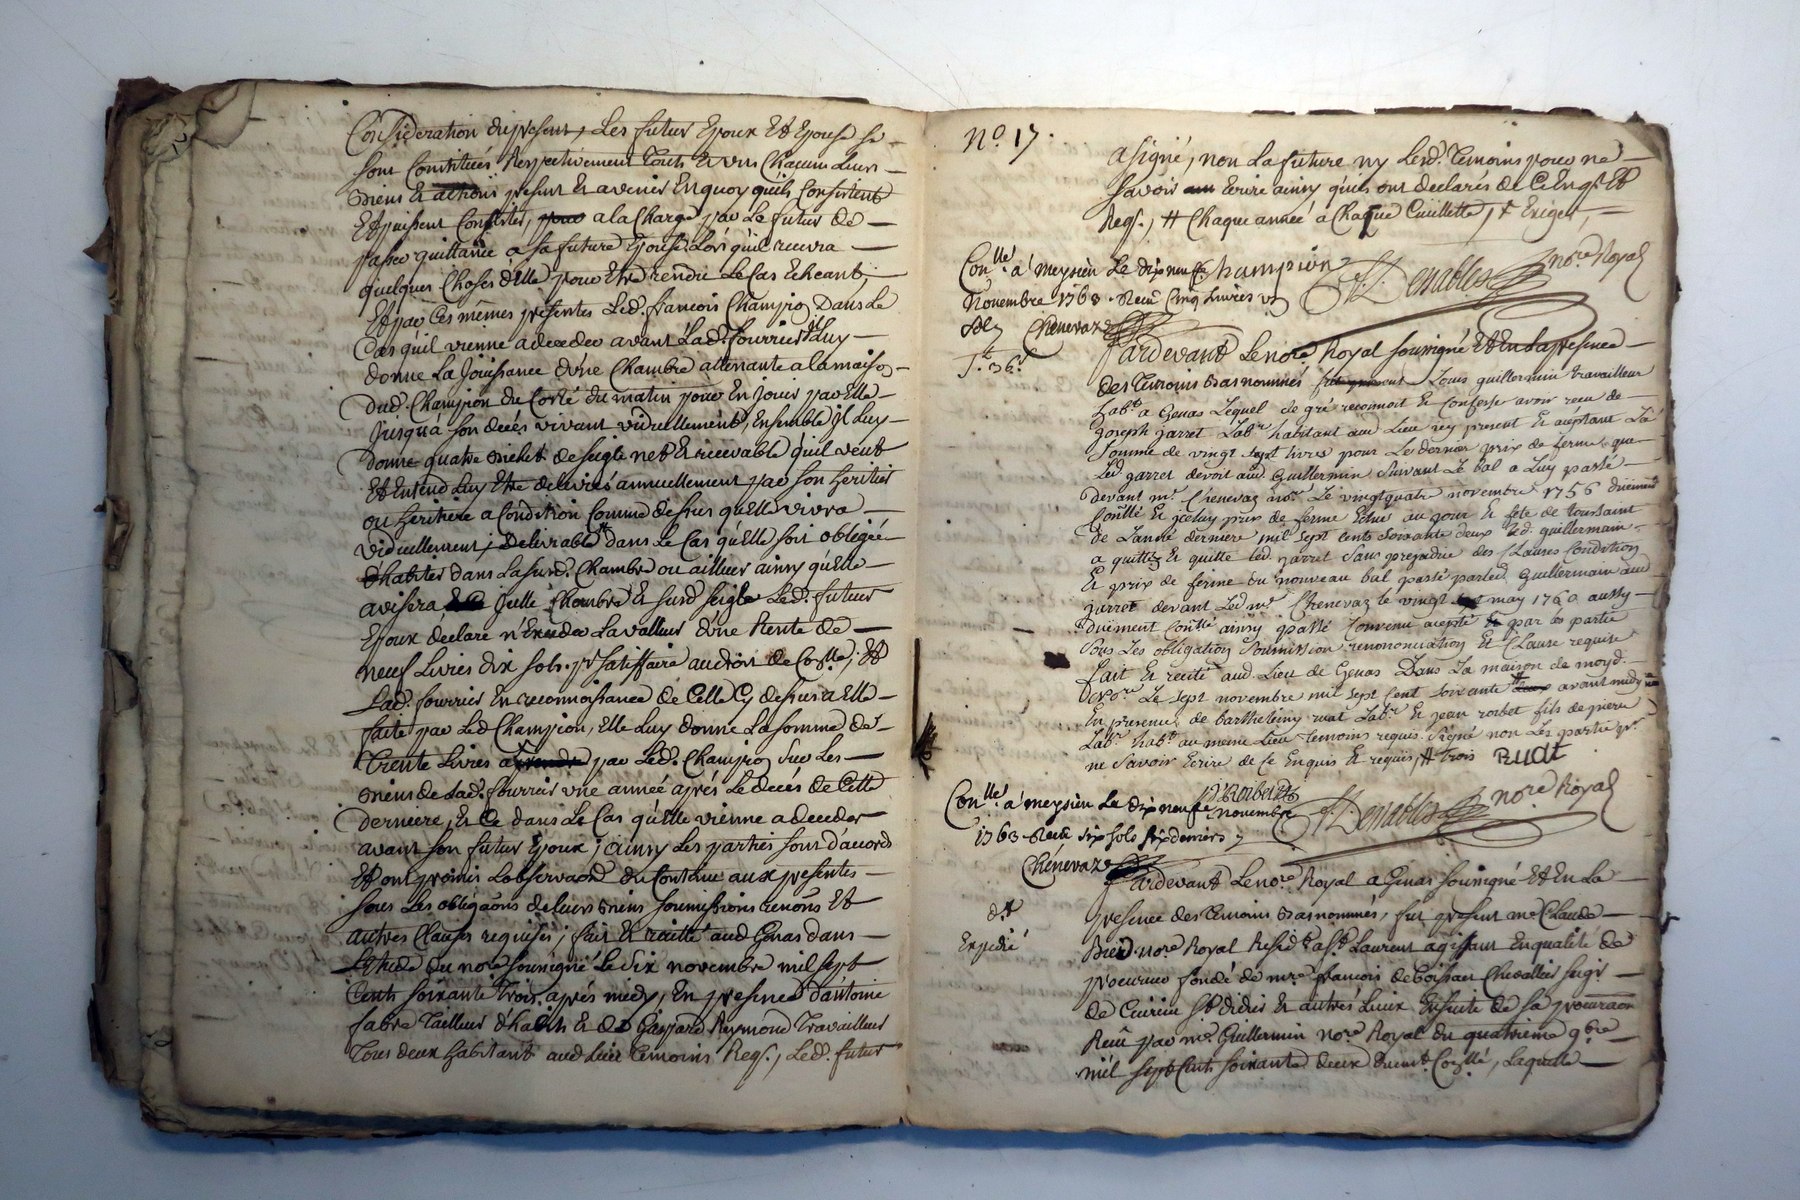 Consideration du present, Les futur Epoux Et Epouse se
sont Constitués Respectivement touts Et uns Chacuns leurs
Biens Et actions present Et avenir En quoy qu'ils Consistent
Et puissent Consister, a la Charge par Le futur de
passer quittance a sa future Epouse Lors qu'il recevra
quelques Choses d'Elle pour Etre rendu Le Cas Echeant
Et par Ces mêmes presentes Led. françois Champion Dans Le
Cas qu'il vienne a deceder avant Lad. fourrier Il Luy
donne La Jouissance d'une Chambre attenante a la maison
dud. Champion du Coté du matin pour En jouir par Elle
Jusqua son decés vivant viduellement, Ensemble Il Luy
donne quatre bichet de seigle net Et recevable qu'il veut
Et Entend Luy Etre delivrés annuellement par son heritier
ou heritiere a Condition Comme dessus qu'Elle vivra
viduellement, Delivrable dans Le Cas qu'Elle soit obligée
d'habiter dans Lasusd. Chambre ou ailleurs ainsy qu'Elle
avisera Chambre Et susd seigle Led. futur
Epoux declare n'Exceder La valleur d'une Rente de
neuf Livres dix sols pr satisfaire au droit de Conlle; Et
Lad. fourrier En reconnoissance de Celle Cy dessus a Elle
faite par Led Champion, Elle Luy donne La somme de
Trente Livres a prendre par Led. Champion Sur Les
Biens de Lad. fourrier une année aprés Le decés de Cette
derniere, Et Ce dans Le Cas qu'Elle vienne a deceder
avant son futur Epoux, ainsy Les parties sont d'accord
Et ont promis L'observaon du Contenu aux presentes
sous Les obligaons de leurs Biens soumissions renons Et
autres Clauses requises; fait Et recitté aud Genas dans
L'Etude du nore soussigné Le Six novembre mil sept
Cents soixante trois, aprés midy, En presence d'antoine
fabre Tailleur d'habits Et de Gaspard Reymond Travailleur
Tous deux habitant aud Lieu temoins Reqs., Led. futur
No. 17.
a signé, non La future ny Lesd. temoins pour ne
savoir Ecrire ainsy qu'ils ont declarés de Ce Enqs. Et
Reqs., # Chaque année a Chaque Cüillette, + Exiger,
Champion
Denables nore. Royal
Conllé. a meysieu Le dix neuf
Novembre 1763. Reçu Cinq Livres
Chenevaz
Pardevant Le nore Royal soussigné Et En La presence
des temoins Basnommés fut present Louis guillermin travailleur
habt. a Genas Lequel de gré reconnoit Et Confesse avoir recu de
Joseph jarret Labr. habitant aud Lieu icy present Et aceptant La
Somme de vingt sept livres pour Le dernier prix de ferme que
Led. jarret devoit aud. Guillermin Suivant Le bal a Luy passé
devant mr. Chenevaz nore. Le vingtquatre novembre 1756 duëment
Conllé Et jceluy prix de ferme Echu au jour Et fête de toussaint
de L'année derniere mil sept Cents soixante deux Led guillermain
a quitté Et quitte Led. jarret Sans prejudice des Clauses Condition
Et prix de ferme du nouveau bal passé par led. Guillermain aud
jarret devant Led mr. Chenevaz le vingt may 1760 aussy
duëment Conllé ainsy passé Convenu acepté par les partie
Sous Les obligation Soumission renonciation Et Clause requise
fait Et recité aud. Lieu de Genas Dans La maison de moyd.
Le Sept novembre mil Sept Cent Soixante avant midy
En presence de barthelemy ruat Labr. Et jean roibet fils de pierre
Labr. habt. au meme Lieu temoins requis. Signé non Les partie pr.
ne Savoir Ecrire de Ce Enquis Et requis, # trois
Rudt
J Roibet
Denables nore Royal
Conllé. a meysieu Le dix neuf
novembre
1763 Recu six sols six deniers
Chénevaz
Pardevant Le nore. Royal a Genas soussigné Et En La
presence des temoins Basnommés, fut present me. Claude
Expedié
nore Royal Residt. a St. Laurent agissant En qualité de
procureur fondé de mre. françois de Boissac Chevallier seigr.
de Cuirieu St didier Et autres Lieux Ensuite de sa procuraon
Reçu par me. Guillermin nore. Royal du quatrieme 9bre
mil sept Cents soixante deux duëmt. Conllé, Laquelle